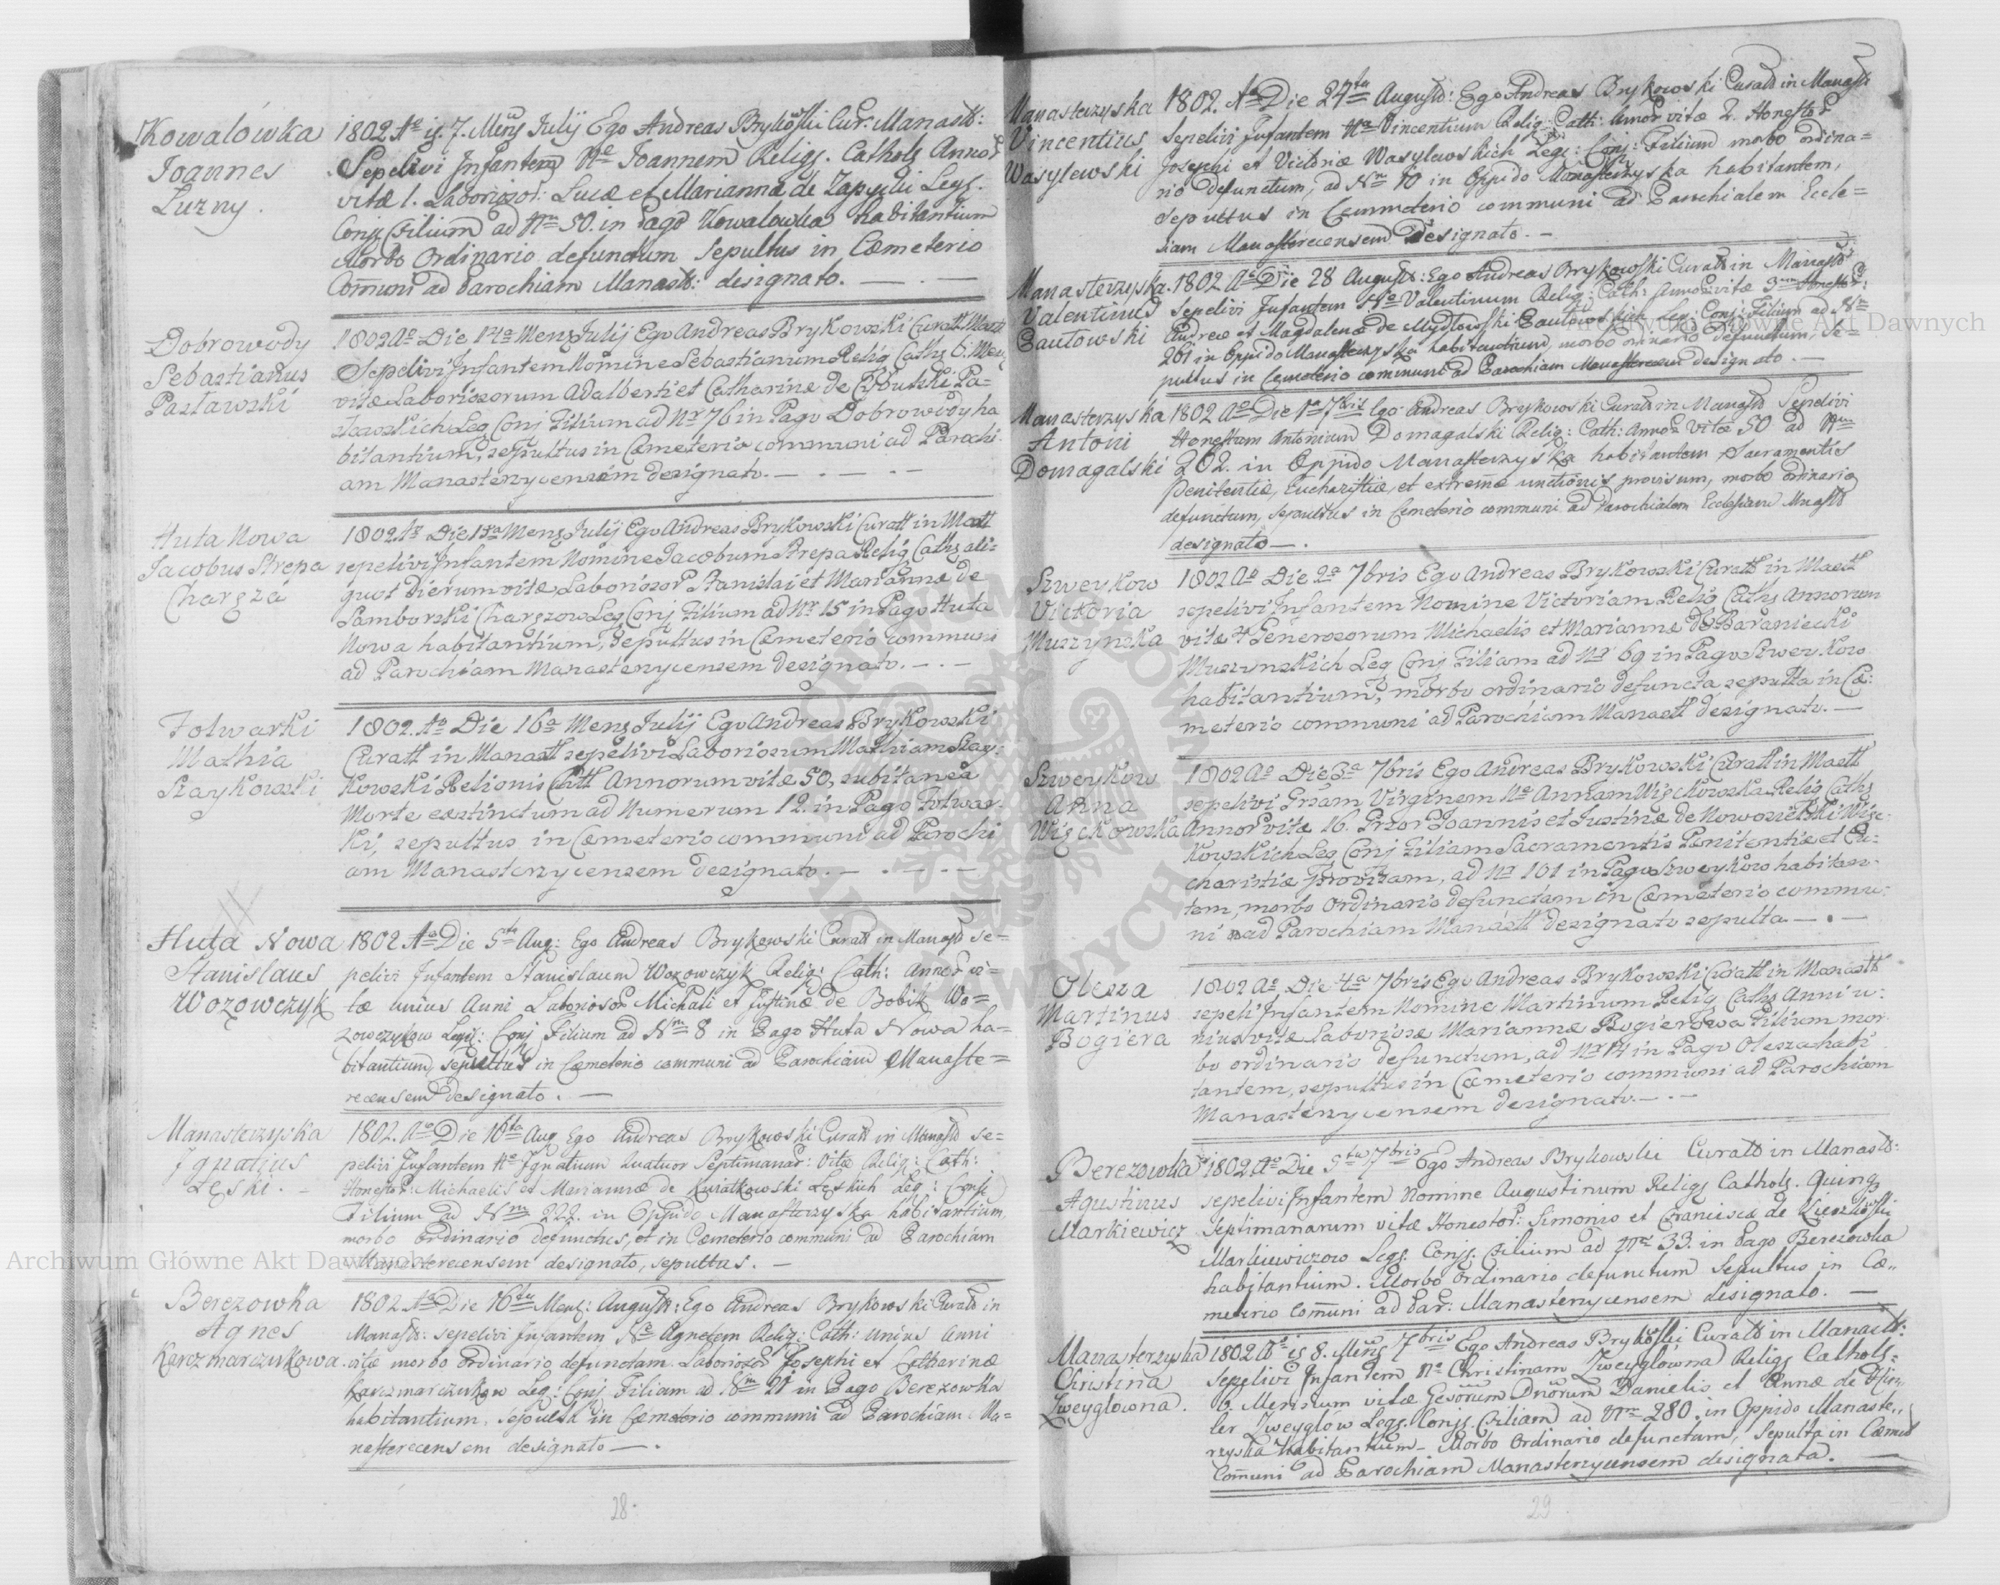 Kowalówka
Joannes
Luzny.
1802 Ao is. 7. Mens Julij Ego Andreas Brykowski Cur: Manast:
Sepelivi Infantem Ne Joannem Religs. Cathols Annor
vitæ 1. Laboriosor: Lucæ et Marianna de Zapyli Legs.
Conjs Filium ad Nrm 50. in Pago Kowalowka habitantium
Morbo Ordinario defunctum Sepultus in Cæmeterio
Comuni ad Parochiam Manast: designato. —
Dobrowody
Sebastianus
Pasławski
1802 Ao Die 14a Mens Julij Ego Andreas Brykowski Curatt Mastt
Sepelivi Infantem Nomine Sebastianum Relig Caths 6. Mens
vitæ Laboriosorum Adalberti et Catharinæ de Cybulski Pa-
sławskich Leg Conj Filium ad Nr 76 in Pago Dobrowody ha
bitantium, sepultus in Cæmeterio communi ad Parochi
am Manasterzycensem designato. — . — . —
Huta Nowa
Jacobus Strepa
Chargza
1802 Ao Die 15a Mens Julij Ego Andreas Brykowski Curatt in Mastt
sepelivi Infantem Nomine Jacobum Strepa Relig Caths ali-
quot Dierum vitæ Laboriosor Stanislai et Mariannæ de
Samborski Chargzow Leg Conj Filium ad Nr 15 in Pago Huta
Nowa habitantium, Sepultus in Cæmeterio communi
ad Parochiam Manasterzycensem designato. — . —
Folwarki
Mathia
Szaykowski
1802. Ao Die 16a Mens Julij Ego Andreas Brykowski
Curatt in Manastt sepelivi Laboriosum Mathiam Szay-
kowski Relionis Cattl Annorum vitæ 50, subitanea
Morte exstinctum ad Numerum 12. in Pago Folwar-
ki, sepultus in Cæmeterio communi ad Parochi
am Manasterzycensem designato. — . — . —
Huta Nowa
Stanislaus
Wozowczyk
1802 Ao Die 5ta Aug: Ego Andreas Brykowski Curatt in Manast se-
pelivi Infantem Stanislaum Wozowczyk Relig: Cath: Annor vi-
tæ unius Anni Laboriosor Michali et Justinæ de Bobik Wo-
zowczykow Legit: Conj Filium ad Nrm 8 in Pago Huta Nowa ha-
bitantium, sepultus in Cæmeterio communi ad Parochiam Manaste-
recensem designato. —
Manasterzyska
Ignatius
Łęski. —
1802. Ao Die 10ta Aug Ego Andreas Brykowski Curatt in Manast se-
pelivi Infantem Ne Ignatium Quatuor Septimanar: Vitæ Relig: Cath:
Honestor: Michaelis et Mariannæ de Kwiatkowski Łęskich Leg: Conj
Filium ad Nrm 222. in Oppido Manasterzyska habitantium
morbo ordinario defunctus, et in Cæmeterio communi ad Parochiam
Manasterecensem designato, sepultus. —
Berezowka
Agnes
Karczmarczukowa
1802 Ao Die 16ta Mens: August: Ego Andreas Brykowski Curatt in
Manast: sepelivi Infantem Ne Agnetem Relig: Cath: unius Anni
vitæ morbo ordinario defunctam. Laboriosor Josephi et Catharinæ
Karczmarczukow Leg: Conj Filiam ad Nrm 21 in Pago Berezowka
habitantium, sepulta in Cæmeterio communi ad Parochiam Ma-
nasterecensem designato —.
28.
Manasterzyska
Vincentius
Wasylewski
1802. Ao Die 24ta August: Ego Andreas Brykowski Curatt in Manast
sepelivi Infantem Ne Vincentium Relig: Cath: Annor vitæ 2. Honestor
Josephi et Victoriæ Wasylewskich Leg: Conj: Filium morbo ordina-
rio defunctum, ad Nrm 10 in Oppido Manasterzyska habitantem,
sepultus in Cæmeterio communi ad Parochialem Eccle-
siam Manasterecensem Designato. —
Manasterzyska
Valentinus
Pautowski
1802 Ao Die 28 August: Ego Andreas Brykowski Curatt in Manast
sepelivi Infantem Ne Valentinum Relig: Cath: Annor vitæ 3um Honestor:
Andreæ et Magdalenæ de Mydłowski Pautowskich Leg: Conj: Filium ad Nrm
261 in Oppido Manasterzyska habitantium, morbo ordinario defunctum, se-
pultus in Cæmeterio communi ad Parochiam Manasterecen designato. —
Manasterzyska
Antoni
Domagalski
1802 Ao Die 1a 7bris Ego Andreas Brykowski Curatt in Manast Sepelivi
Honestum Antonium Domagalski Relig: Cath: Annor Vitæ 50 ad Nrm
262. in Oppido Manasterzyska habitantem Sacramentis
Penitentiæ, Eucharistiæ, et extremæ unctionis provisum, morbo ordinario
defunctum, sepultus in Cæmeterio communi ad Parochialem Ecclesiam Mnast
designato —.
Szweykow
Victoria
Muszynska
1802 Ao Die 2a 7bris Ego Andreas Brykowski Curatt in Mastt
sepelivi Infantem Nomine Victoriam Relig Caths Annorum
vitæ 4 Generosorum Michaelis et Mariannæ de Baraniecki
Muszynskich Leg Conj Filiam ad Nr 69 in Pago Szweykow
habitantium, morbo ordinario defuncta sepulta in Cæ-
meterio communi ad Parochiam Manastt designato. —
Szweykow
Anna
Więckowska
1802 Ao Die 3a 7bris Ego Andreas Brykowski Curatt in Mastt
sepelivi Grsam Virginem Ne Annam Więckowska Relig Caths
Annor vitæ 16. Grsor Joannis et Justinæ de Nowosielski Więc-
kowskich Leg Conj Filiam Sacramentis Pænitentiæ et Eu-
charistiæ provisam, ad Nr 101 in Pago Szweykow habitan-
tem, morbo Ordinario defunctam in Cæmeterio commu-
ni ad Parochiam Manastt designato sepulta — . —
Olesza
Martinus
Bogiera
1802 Ao Die 4a 7bris Ego Andreas Brykowski Curatt in Manastt
sepeli Infantem Nomine Martinum Relig Caths Anni u-
nius vitæ Laboriosæ Mariannæ Bogierowa Filium mor
bo ordinario defunctum, ad Nr 14 in Pago Olesza habi
tantem, sepultus in Cæmeterio communi ad Parochiam
Manasterzycensem designato. — . —
Berezowka
Agustinus
Markiewicz
1802 Ao Die 5ta 7bris Ego Andreas Brykowski Curatt in Manast:
sepelivi Infantem Nomine Augustinum Religs Cathols. Quinq
Septimanarum vitæ Honestor: Simonis et Francisca de
Markiewiczow Legs. Conjs. Filium ad Nrm 33. in Pago Berezowka
habitantium. Morbo Ordinario defunctum Sepultus in Cæ-
meterio Comuni ad Par: Manasterzycensem designato. —
Manasterzyska
Christina
Zweyglowna.
1802 Ao is 8. Mens 7bris Ego Andreas Brykowski Curatt in Manast:
Sepelivi Infantem Ne Christinam Zweyglowna Religs Cathols.
6. Mensium vitæ Gesorum Dnorum Danielis et Annæ de
ler Zweyglow Legs. Conjs. Filiam ad Nrm 280. in Oppido Manaste-
rzyska Habitantium — Morbo Ordinario defunctam, Sepulta in Cæmet
Comuni ad Parochiam Manasterzycensem designata. —
29
Archiwum Główne Akt Dawnych
Archiwum Główne Akt Dawnych
ARCHIWUM GŁÓWNE AKT DAWNYCH